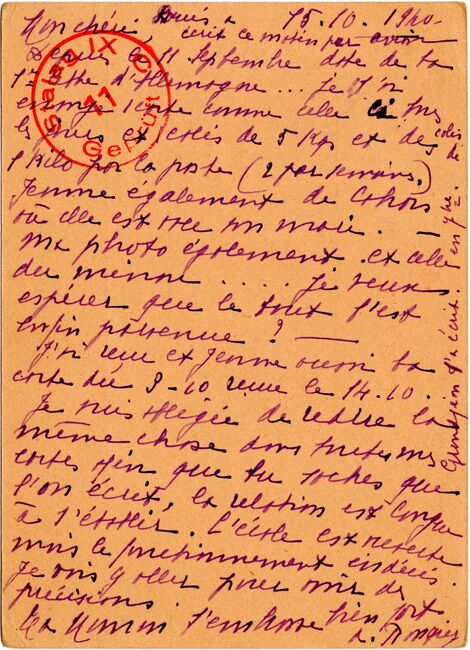 Mon chéri, 15.10.1940
écrit ce matin par avion
Depuis le 11 Septembre date de ta
1ère carte d'Allemagne... Je t'ai
envoyé 1 carte comme celle ci tous
les jours et colis de 5 Kgs et des colis de
1 kilo par la poste (2 par semaine.)
Jeanne également de Cahors
où elle est avec son mari.
Ma photo également et celle
du ménage ..... Je veux
espérer que le tout t'est
enfin parvenue ? —
J'ai reçu et Jeanne aussi ta
carte du 3-10 reçue le 14.10.
Je suis obligée de redire la
même chose dans toutes mes
cartes afin que tu saches que
l'on écrit, la relation est longue
à s'établir. L'école est ouverte
mais le fonctionnement indécis.
Je vais y aller pour avoir des
précisions.
Ta Maman t'embrasse bien fort
Grandjean t'a écrit.
Stalag IX C
27
Geprüft